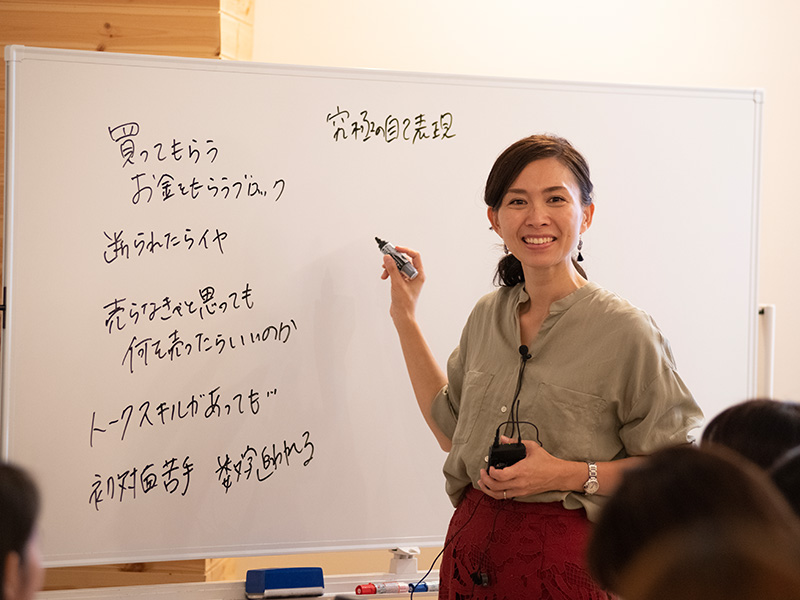 買ってもらう
お金をもらうブロック
断られたらイヤ
売らなきゃと思っても
何を売ったらいいのか
トークスキルがあっても…
初対面苦手 数字追われる
究極の自己表現